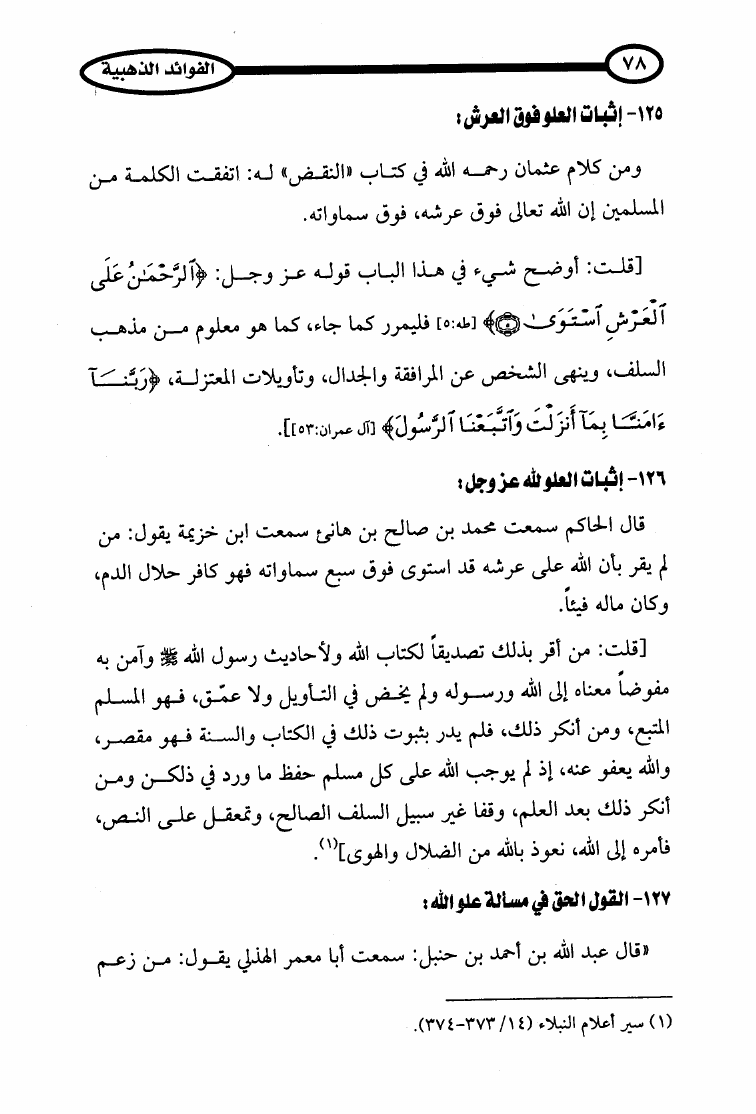 ٧٨
الفوائد الذهبية
١٢٥- إثبات العلو فوق العرش:
ومن كلام عثمان رحمه الله في كتاب «النقض» له: اتفقت الكلمة من
المسلمين إن الله تعالى فوق عرشه، فوق سماواته.
[قلت: أوضح شيء في هذا الباب قوله عز وجل: ﴿ٱلرَّحْمَٰنُ عَلَى
ٱلْعَرْشِ ٱسْتَوَىٰ ۝٥﴾ [طه:٥] فليمرر كما جاء، كما هو معلوم من مذهب
السلف، وينهى الشخص عن المرافقة والجدال، وتأويلات المعتزلة، ﴿رَبَّنَآ
ءَامَنَّا بِمَآ أَنزَلْتَ وَٱتَّبَعْنَا ٱلرَّسُولَ﴾ [آل عمران:٥٣]].
١٢٦- إثبات العلو لله عز وجل:
قال الحاكم سمعت محمد بن صالح بن هانئ سمعت ابن خزيمة يقول: من
لم يقر بأن الله على عرشه قد استوى فوق سبع سماواته فهو كافر حلال الدم،
وكان ماله فيئاً.
[قلت: من أقر بذلك تصديقاً لكتاب الله ولأحاديث رسول الله ﷺ وآمن به
مفوضاً معناه إلى الله ورسوله ولم يخض في التأويل ولا عمّق، فهو المسلم
المتبع، ومن أنكر ذلك، فلم يدر بثبوت ذلك في الكتاب والسنة فهو مقصر،
والله يعفو عنه، إذ لم يوجب الله على كل مسلم حفظ ما ورد في ذلكن ومن
أنكر ذلك بعد العلم، وقفا غير سبيل السلف الصالح، وتمعقل على النص،
فأمره إلى الله، نعوذ بالله من الضلال والهوى](١).
١٢٧- القول الحق في مسألة علو الله:
«قال عبد الله بن أحمد بن حنبل: سمعت أبا معمر الهذلي يقول: من زعم
(١) سير أعلام النبلاء (١٤/ ٣٧٣-٣٧٤).